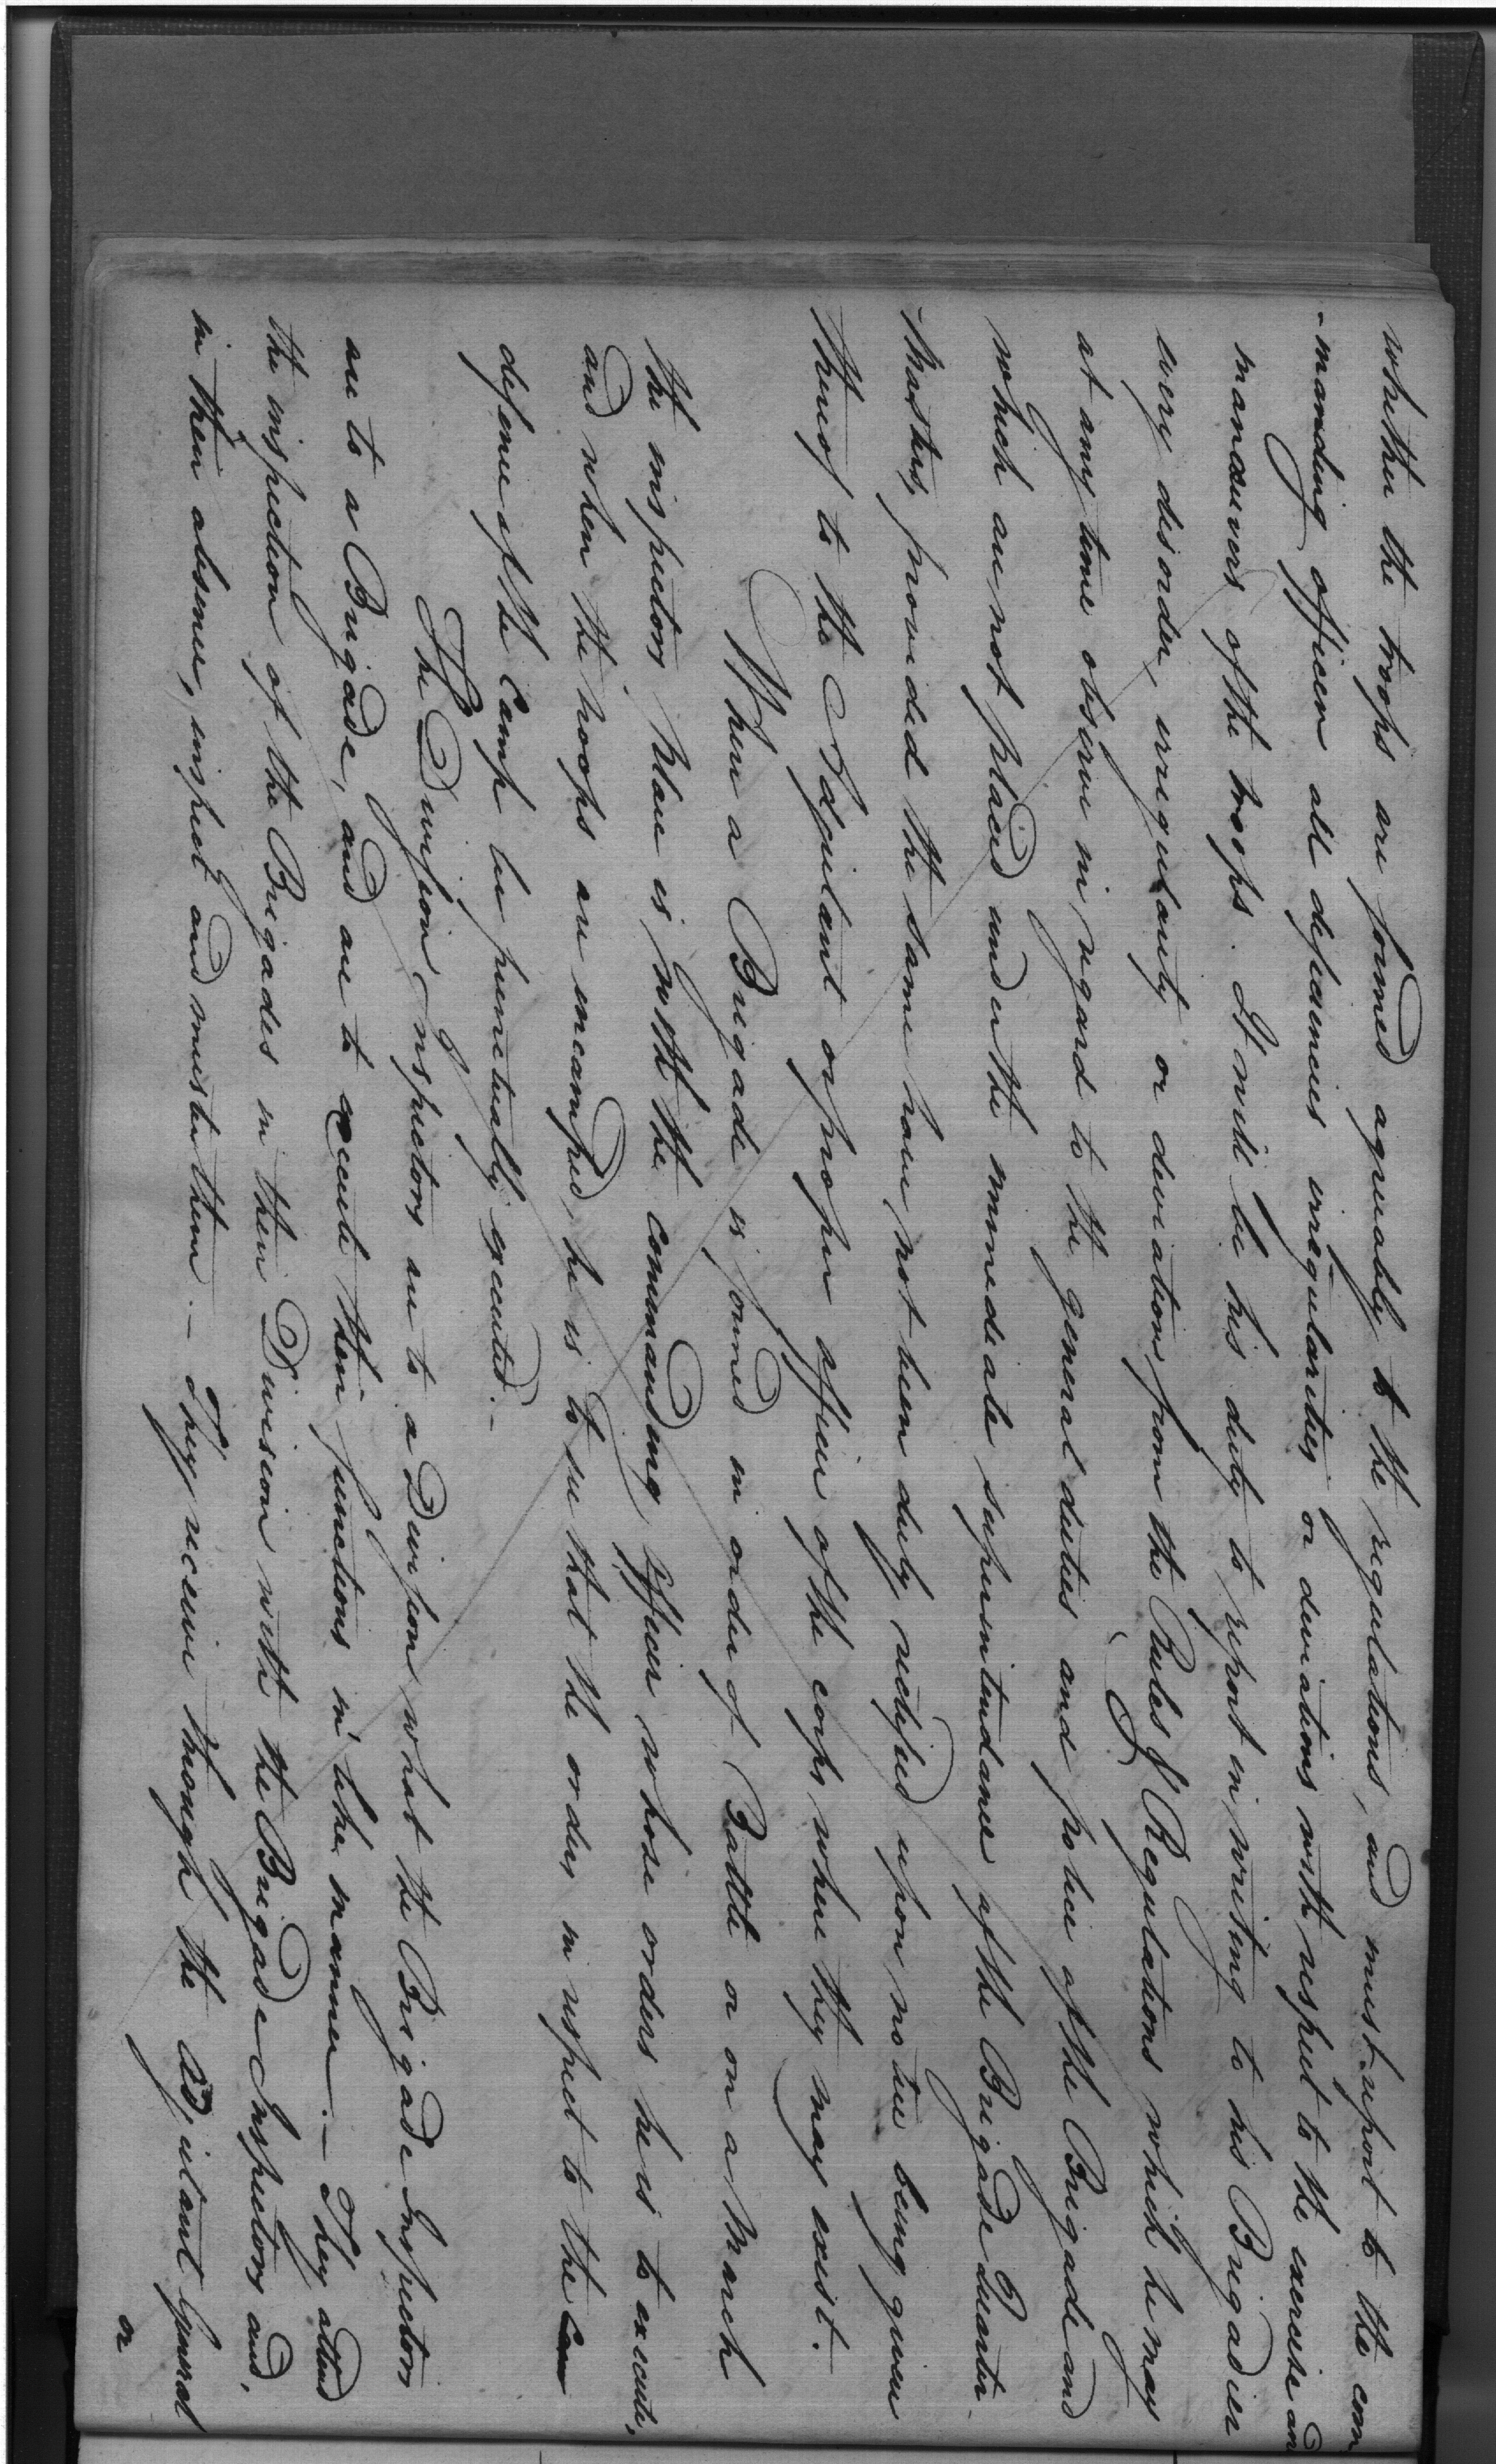 whether the troops are formed agreeably to the regulations, and must report to the com
-manding officer all deficiencies irregularities or deviations with respect to the exercise and
manœuvers of the troops. It will be his duty to report in writing to his Brigadier
every disorder, irregularity or deviation from the Rules & Regulations which he may
at any time observe in regard to the general duties and police of the Brigade and
which are not placed under the immediate superintendance of the Brigade Quarter-
-Master, provided the same have not been duly rectified upon notice being given
thereof to the Adjutant or proper officer of the corps where they may exist.
When a Brigade is formed in order of Battle or on a March
the inspectors place is with the commanding officer whose orders he is to execute,
and when the troops are encamped, he is to see that the orders in respect to the Cam
defence of the Camp be punctually executed.-
The Division Inspectors are to a Division what the Brigade Inspectors
are to a Brigade, and are to execute their functions in like manner.- They attend
the inspection of the Brigades in their Division with the Brigade Inspectors and,
in their absence, inspect and muster them.- They receive through the Adjutant General
or